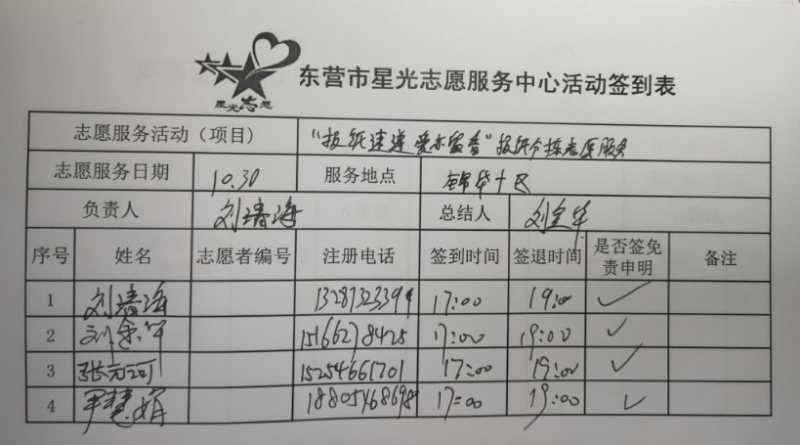 星光志愿
东营市星光志愿服务中心活动签到表
志愿服务活动（项目） “报纸速递 爱永留香”报纸分拣志愿服务
志愿服务日期 10.30 服务地点 锦华十区
负责人 刘清海 总结人 刘金华
序号 姓名 志愿者编号 注册电话 签到时间 签退时间 是否签免责申明 备注
1 刘清海 17:00 19:00 ✓
2 刘金华 15166278425 17:00 19:00 ✓
3 张元河 15254661701 17:00 19:00 ✓
4 尹慧娟 18805468698 17:00 19:00 ✓